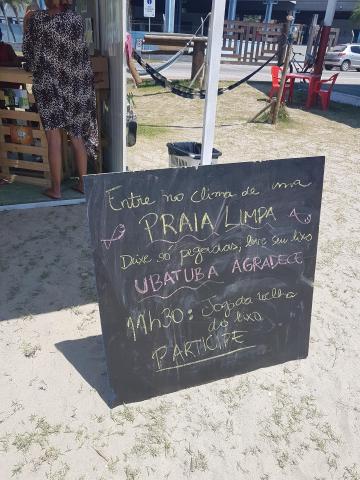 Entre no clima de uma
PRAIA LIMPA
Deixe só pegadas, leve seu lixo
UBATUBA AGRADECE
11h30: Jogo da velha
do lixo
PARTICIPE